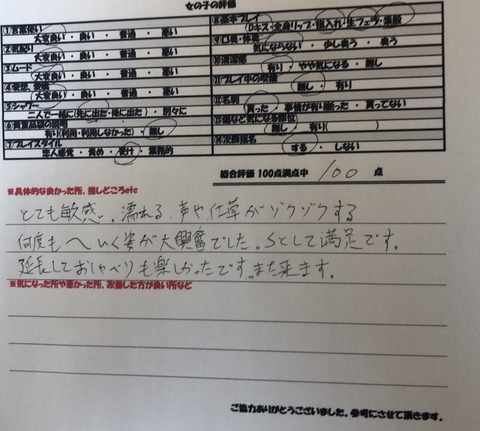 女の子の評価
①言葉使い
大変良い・良い・普通・悪い
②気配り
大変良い・良い・普通・悪い
③ムード
大変良い・良い・普通・悪い
大変良い・良い・普通・悪い
⑤シャワー
二人で一緒に(先に出た・後に出た)・別々に
有り(利用・利用しなかった)・無し
⑦プレイスタイル
恋人感覚・責め・受け・業務的
⑧基本プレイ
Dキス・全身リップ・指入れ・生フェラ・素股
⑨口臭・体臭
気にならない・少し臭う・臭う
有り・やや気になる・無し
⑪プレイ中の喫煙
無し・有り
⑫名刺
貰った・事情が有り断った・貰ってない
⑬傷など気になる部位
無し・有り( )
⑭次回指名
する・しない
総合評価 100点満点中 100 点
※具体的な良かった所、推しどころetc
とても敏感い、濡れる、声や仕草がゾクゾクする
何度もへいく姿が大興奮でした。Sとして満足です。
延長しておしゃべりも楽しかったです。また来ます。
※気になった所や悪かった所、改善した方が良い所など
ご協力ありがとうございました。参考にさせて頂きます。